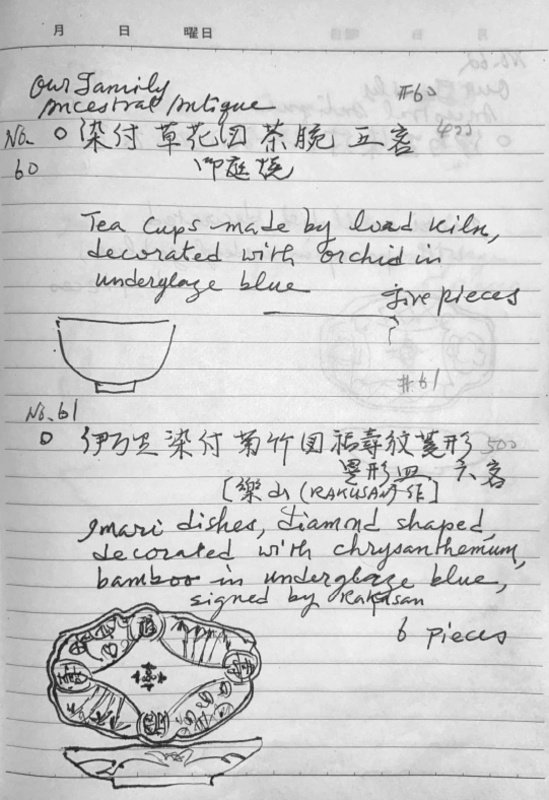 月 日 曜日
Our Family
Ancestral Antique #60
No. 60 ○ 染付 草花図 茶碗 五客 400
御庭焼
Tea cups made by load kiln,
decorated with orchid in
underglaze blue
five pieces
?
#61
No. 61
○ 伊万里 染付 菊竹図 福壽紋 菱形 500
異形皿 六客
[樂山 (RAKUSAN) 作]
Imari dishes, diamond shaped,
decorated with chrysanthemum,
bamboo in underglaze blue,
signed by Rakusan
6 pieces